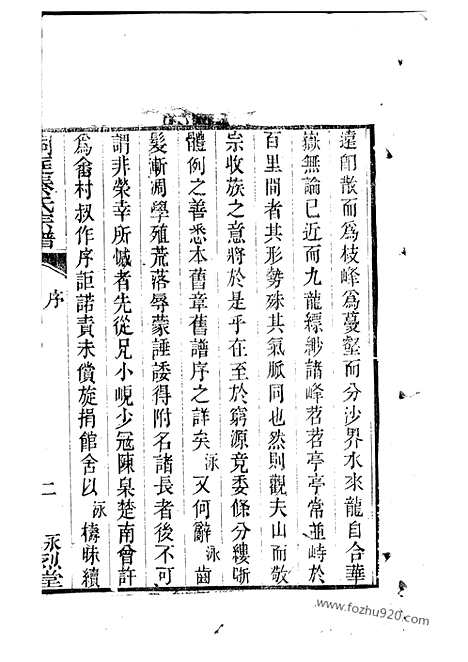 遠即散而爲枝峰爲蔓壑而分沙界水來龍自合華
嶽無論已近而九龍縹緲諸峰苕苕亭亭常並峙於
百里間者其形勢殊其氣脈同也然則觀夫山而敬
宗收族之意將於是乎在至於窮源竟委條分縷晰
體例之善悉本舊章舊譜序之詳矣泳又何辭泳齒
髮漸凋學殖荒落辱蒙諈諉得附名諸長者後不可
謂非榮幸所憾者先從兄小峴少冠陳臬楚南會許
爲畬村叔作序詎諾責未償旋捐館舍以泳檮昧續
秦氏宗譜
序
二
永烈堂
www.fozhu920.com